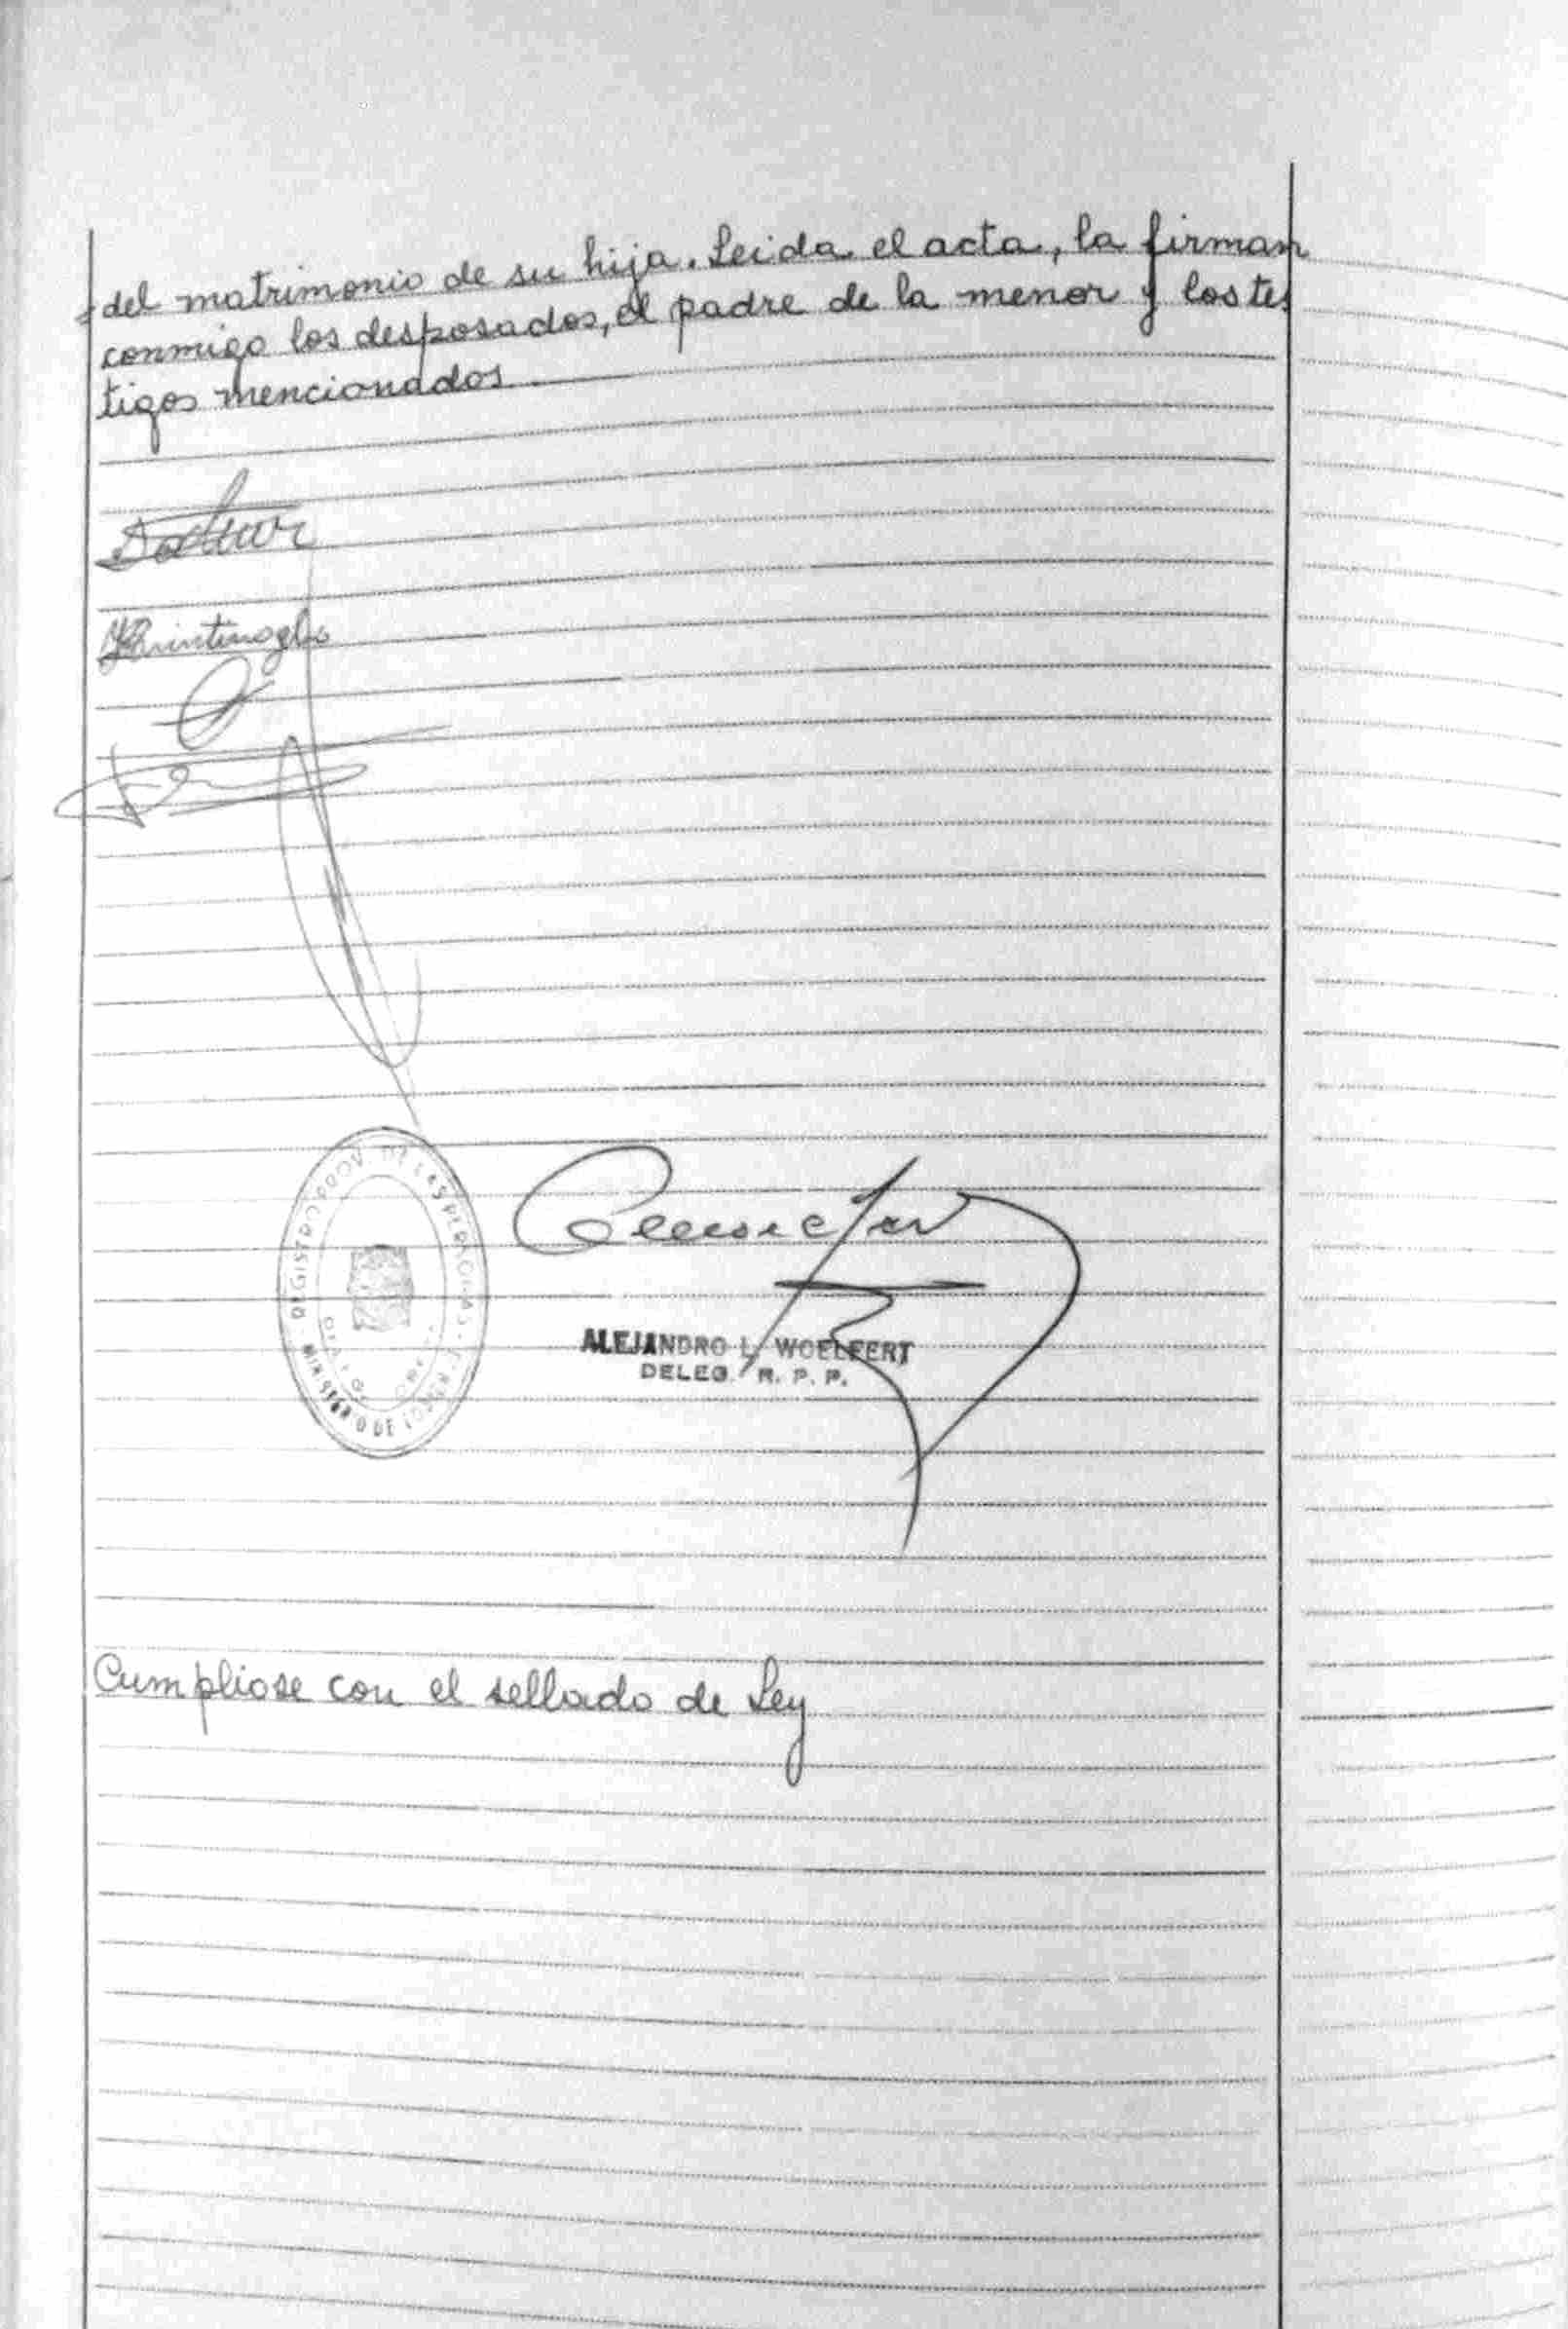 del matrimonio de su hija. Leida el acta, la firman
conmigo los desposados, el padre de la menor y los tes
tigos mencionados
REGISTRO PROV. DE LAS PERSONAS
MINISTERIO DE
ALEJANDRO L. WOELFERT
DELEG. R. P. P.
Cumpliose con el sellado de Ley